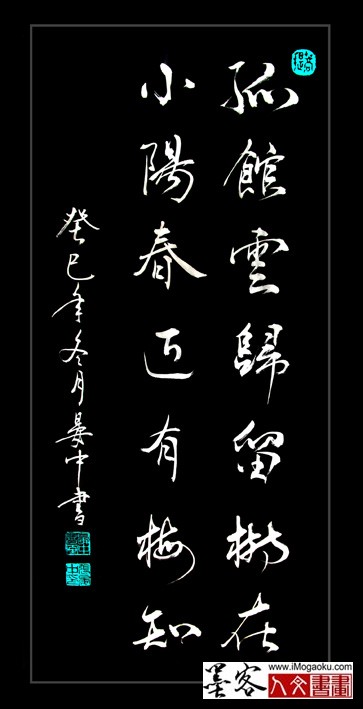 孤館雲歸留樹在
小陽春近有梅知
癸巳年冬月晏中書
www.iMogaoku.com
墨客人文書畫